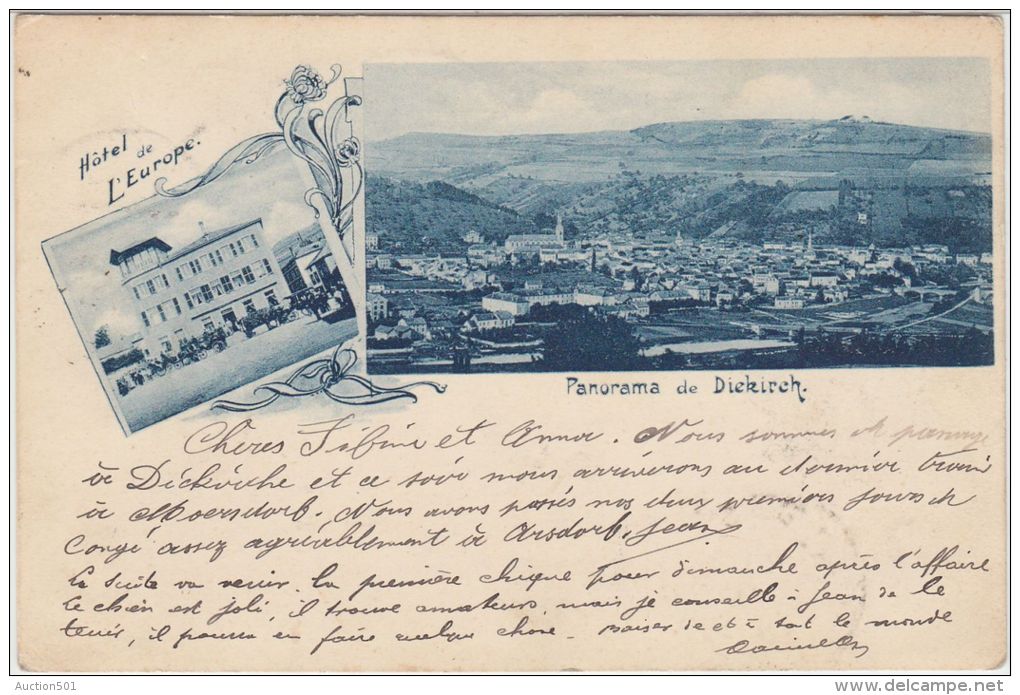 Hôtel de
L'Europe.
Panorama de Diekirch.
Chères et Anna. Nous sommes de passage
à Diekirche et ce soir nous arriverons au dernier train
à Moersdorf. Nous avons passés nos deux premiers jours de
Congé assez agréablement à Arsdorf. Jean
la suite va venir la première chique pour dimanche après l'affaire
le chien est joli, il trouve amateurs, mais je conseille à Jean de le
tenir, il pourra en faire quelque chose - Baiser de et à tout le monde
Auction501
www.delcampe.net